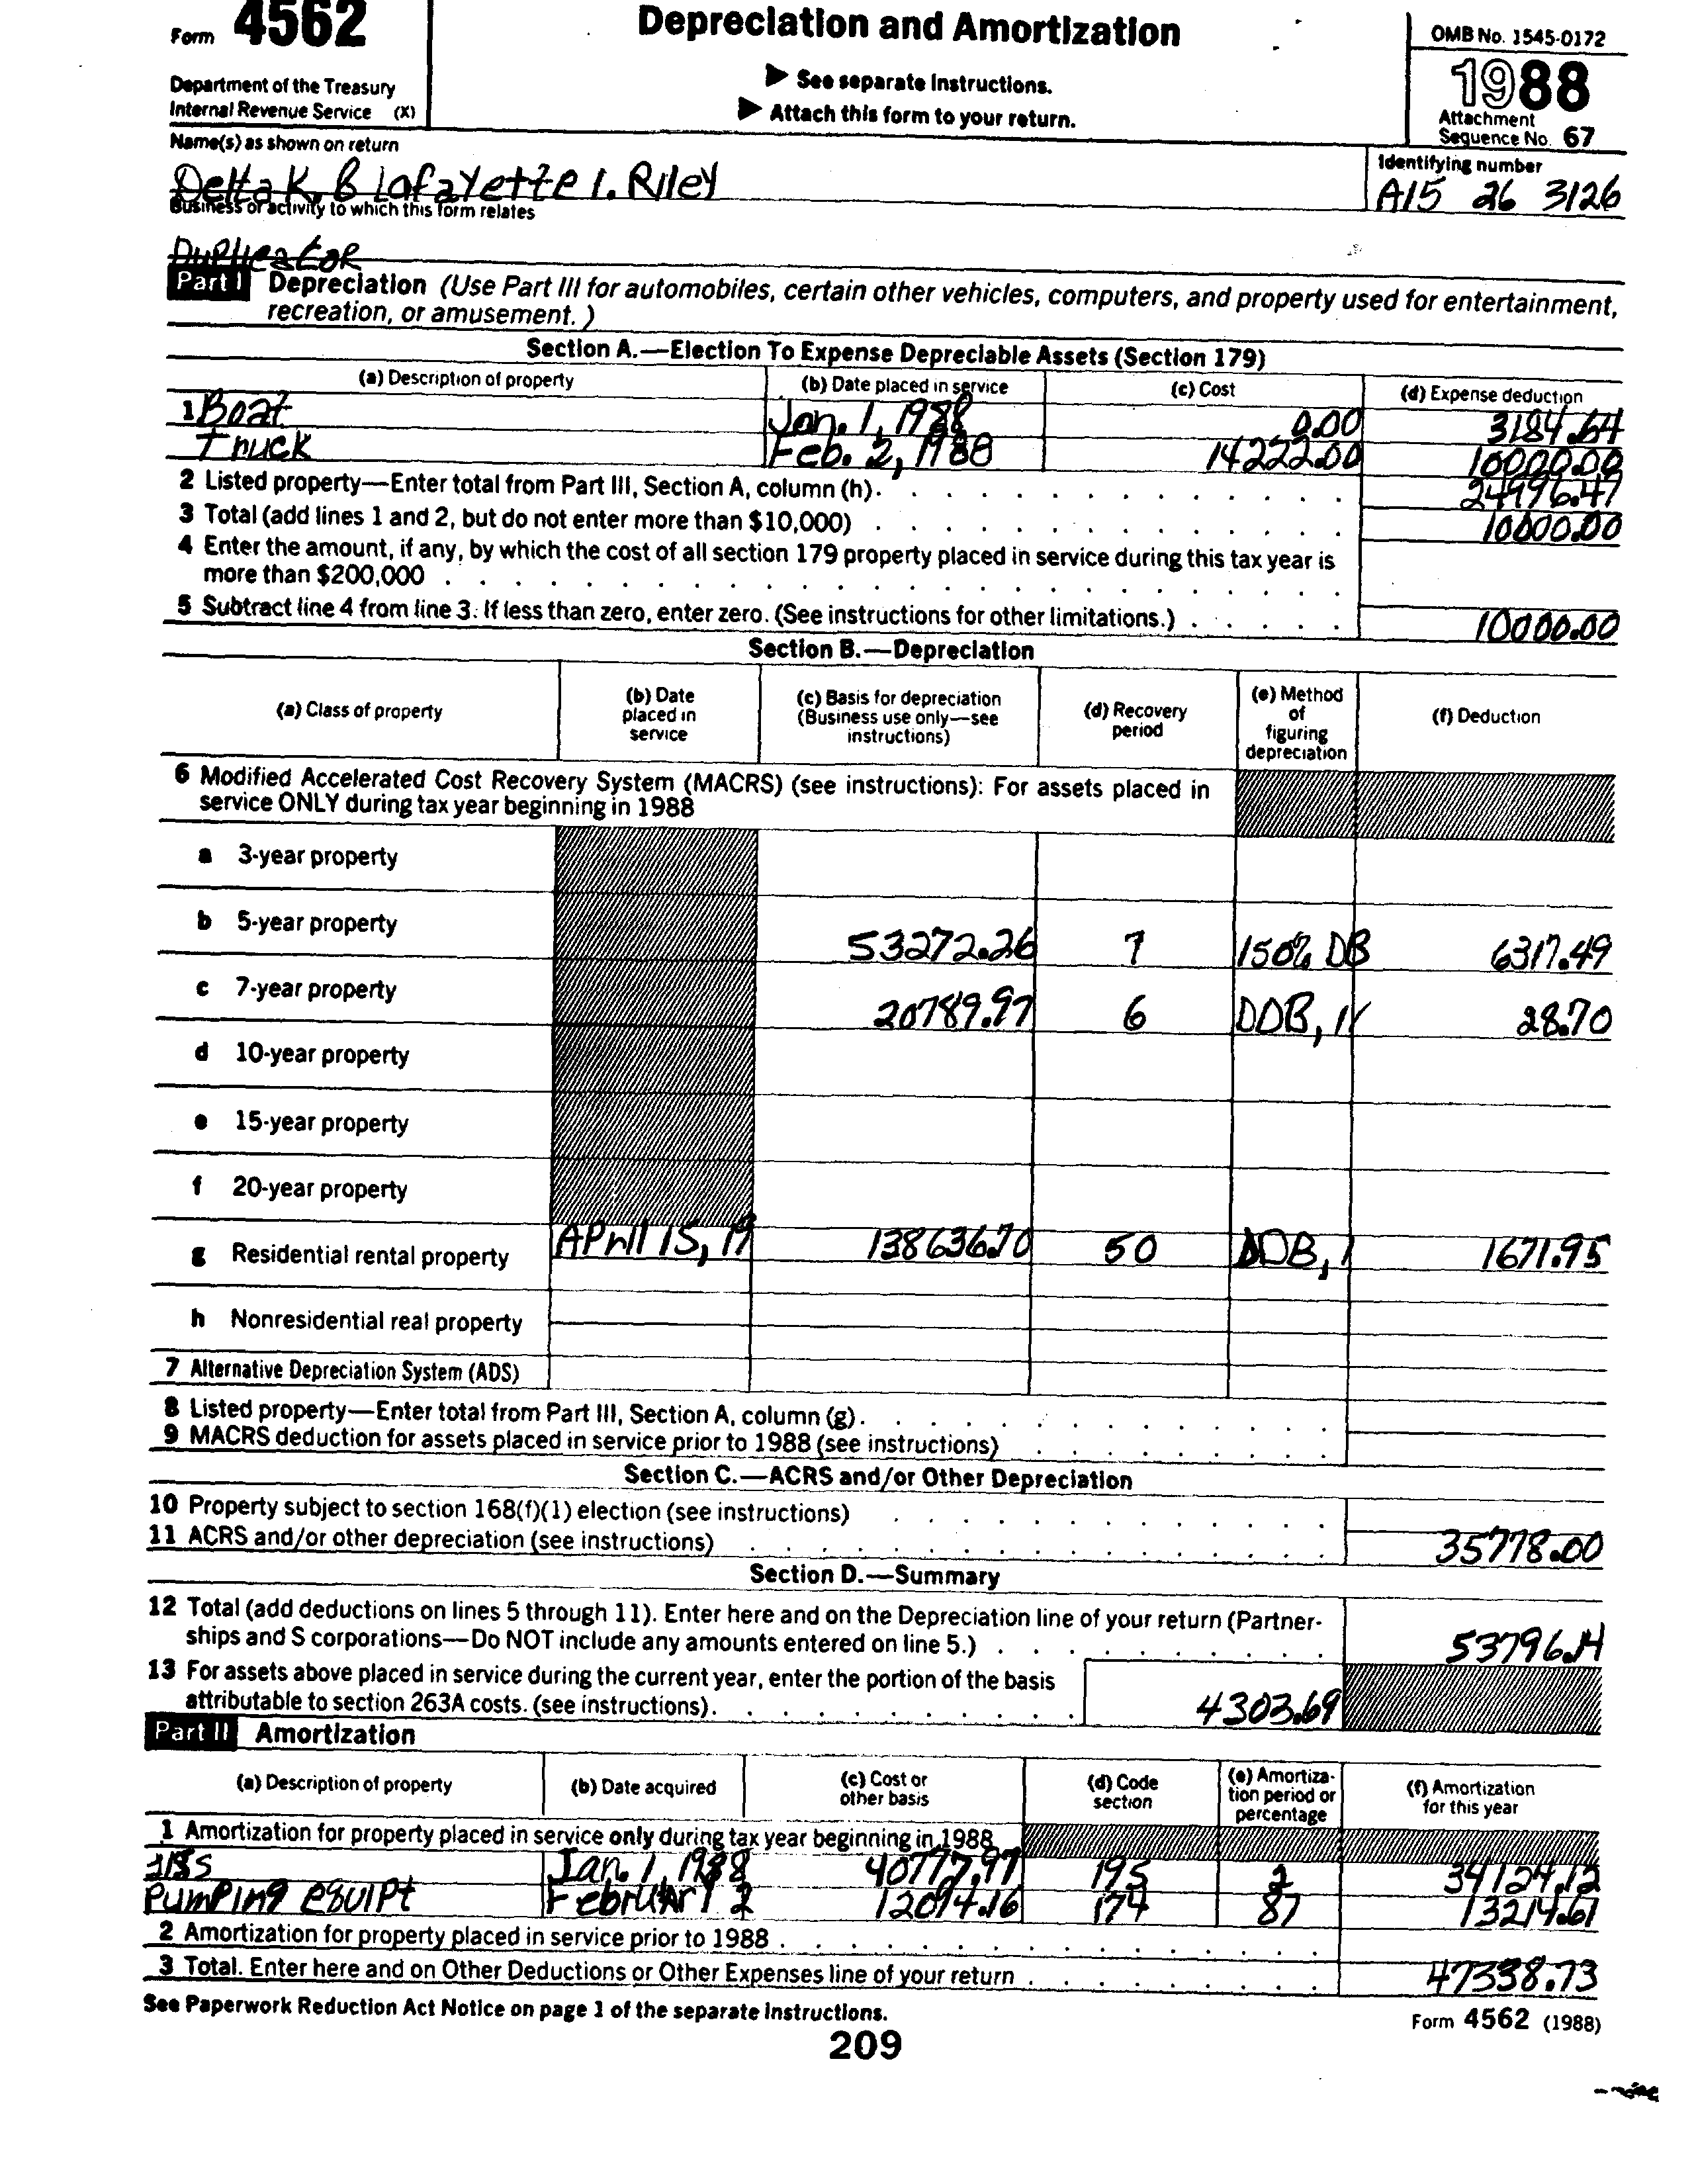 Form 4562
Depreciation and Amortization
OMB No. 1545-0172
1988
Department of the Treasury
Internal Revenue Service (X)
▶ See separate Instructions.
▶ Attach this form to your return.
Attachment
Sequence No. 67
Name(s) as shown on return
Identifying number
Delta K, B Lafayette I. Riley
A15 26 3126
Business or activity to which this form relates
Duplicator
Part I Depreciation (Use Part III for automobiles, certain other vehicles, computers, and property used for entertainment,
recreation, or amusement.)
Section A.—Election To Expense Depreciable Assets (Section 179)
(a) Description of property (b) Date placed in service (c) Cost (d) Expense deduction
1 Boat Jan. 1, 1988 0.00 3184.64
Truck Feb. 2, 1988 14222.00 10000.00
2 Listed property—Enter total from Part III, Section A, column (h). 24996.47
3 Total (add lines 1 and 2, but do not enter more than $10,000) 10000.00
4 Enter the amount, if any, by which the cost of all section 179 property placed in service during this tax year is
more than $200,000
5 Subtract line 4 from line 3. If less than zero, enter zero. (See instructions for other limitations.) 10000.00
Section B.—Depreciation
(a) Class of property
(b) Date
placed in
service
(c) Basis for depreciation
(Business use only—see
instructions)
(d) Recovery
period
(e) Method
of
figuring
depreciation
(f) Deduction
6 Modified Accelerated Cost Recovery System (MACRS) (see instructions): For assets placed in
service ONLY during tax year beginning in 1988
a 3-year property
b 5-year property 53272.26 7 150% DB 6317.49
c 7-year property 20789.97 6 DDB, 28.70
d 10-year property
e 15-year property
f 20-year property
g Residential rental property April 15, 19 138636.70 50 DDB, 1671.95
h Nonresidential real property
7 Alternative Depreciation System (ADS)
8 Listed property—Enter total from Part III, Section A, column (g).
9 MACRS deduction for assets placed in service prior to 1988 (see instructions)
Section C.—ACRS and/or Other Depreciation
10 Property subject to section 168(f)(1) election (see instructions)
11 ACRS and/or other depreciation (see instructions) 35778.00
Section D.—Summary
12 Total (add deductions on lines 5 through 11). Enter here and on the Depreciation line of your return (Partner-
ships and S corporations—Do NOT include any amounts entered on line 5.) 53796.14
13 For assets above placed in service during the current year, enter the portion of the basis
attributable to section 263A costs. (see instructions). 4303.69
Part II Amortization
(a) Description of property
(b) Date acquired
(c) Cost or
other basis
(d) Code
section
(e) Amortiza-
tion period or
percentage
(f) Amortization
for this year
1 Amortization for property placed in service only during tax year beginning in 1988
Jan. 1, 1988 40777.97 195 2 34124.12
Pumping equipt February 2 12094.16 174 87 13214.61
2 Amortization for property placed in service prior to 1988
3 Total. Enter here and on Other Deductions or Other Expenses line of your return 47338.73
See Paperwork Reduction Act Notice on page 1 of the separate instructions.
Form 4562 (1988)
209